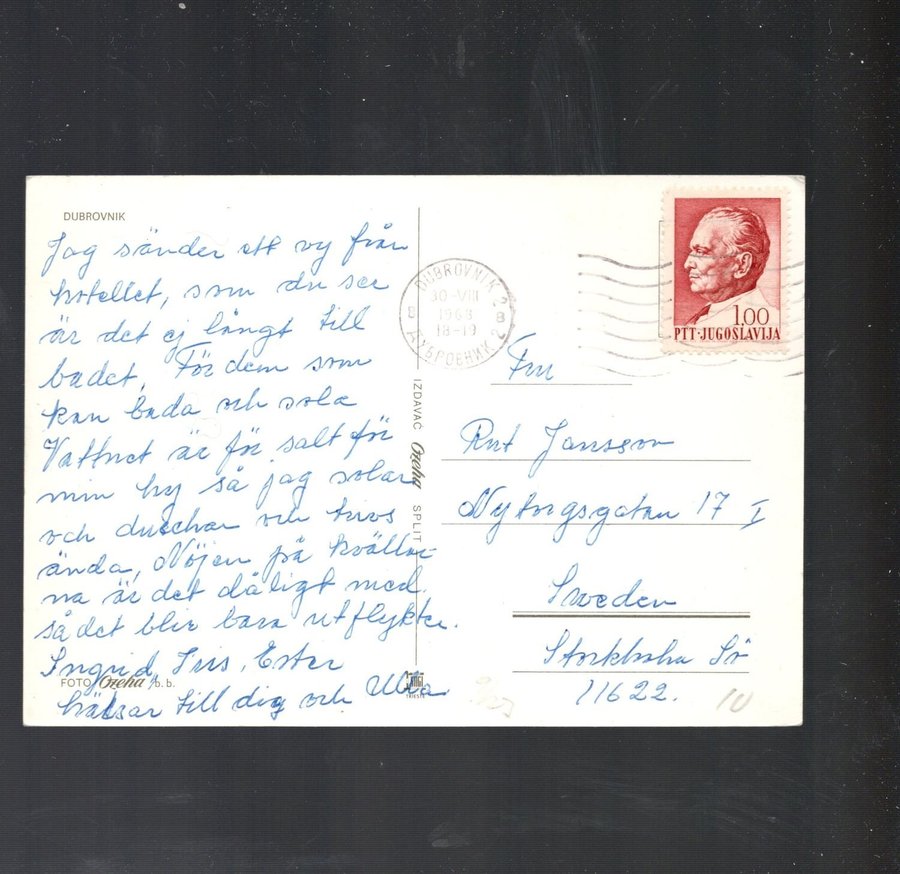 DUBROVNIK
Jag sänder ett vy från
hotellet, som du ser
är det ej långt till
badet. För dem som
kan bada och sola
Vattnet är för salt för
min hy så jag solar
och duschar och trivs
ända, Nöjen på kvällar
na är det dåligt med.
så det blir bara utflykter.
Ingrid, Iris, Ester
hälsar till dig och Ulla
FOTO Ozeha b. b.
TRIESTE
IZDAVAČ Ozeha SPLIT
DUBROVNIK 2
30-VIII
1968
18-19
8 8
ДУБРОВНИК 2
1.00
PTT-JUGOSLAVIJA
Frn
Rut Jansson
Nytorgsgatan 17 I
Sweden
Stockholm Sö
11622.